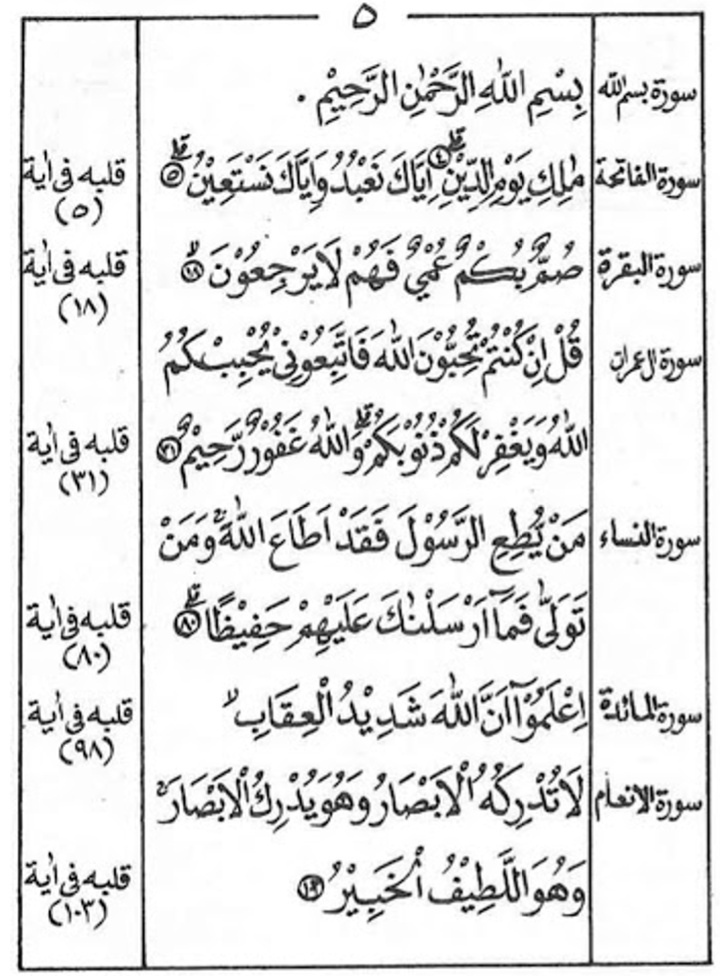 ٥
سورة بسم الله بِسْمِ اللّٰهِ الرَّحْمٰنِ الرَّحِيْمِ .
سورة الفاتحة مٰلِكِ يَوْمِ الدِّيْنِ ۗ ﴿٤﴾ اِيَّاكَ نَعْبُدُ وَاِيَّاكَ نَسْتَعِيْنُ ۗ ﴿٥﴾ قلبه فى أية
(٥)
سورة البقرة صُمٌّ بُكْمٌ عُمْيٌ فَهُمْ لَا يَرْجِعُوْنَ ۙ ﴿١٨﴾ قلبه فى أية
(١٨)
سورة ال عمران قُلْ اِنْ كُنْتُمْ تُحِبُّوْنَ اللّٰهَ فَاتَّبِعُوْنِيْ يُحْبِبْكُمُ
اللّٰهُ وَيَغْفِرْ لَكُمْ ذُنُوْبَكُمْ ۗ وَاللّٰهُ غَفُوْرٌ رَّحِيْمٌ ﴿٣١﴾ قلبه فى أية
(٣١)
سورة النساء مَنْ يُطِعِ الرَّسُوْلَ فَقَدْ اَطَاعَ اللّٰهَ ۚ وَمَنْ
تَوَلّٰى فَمَآ اَرْسَلْنٰكَ عَلَيْهِمْ حَفِيْظًا ۗ ﴿٨٠﴾ قلبه فى أية
(٨٠)
سورة المائدة اِعْلَمُوْٓا اَنَّ اللّٰهَ شَدِيْدُ الْعِقَابِ ۙ قلبه فى أية
(٩٨)
سورة الانعام لَا تُدْرِكُهُ الْاَبْصَارُ وَهُوَ يُدْرِكُ الْاَبْصَارَ ۚ
وَهُوَ اللَّطِيْفُ الْخَبِيْرُ قلبه فى أية
(١٠٣)